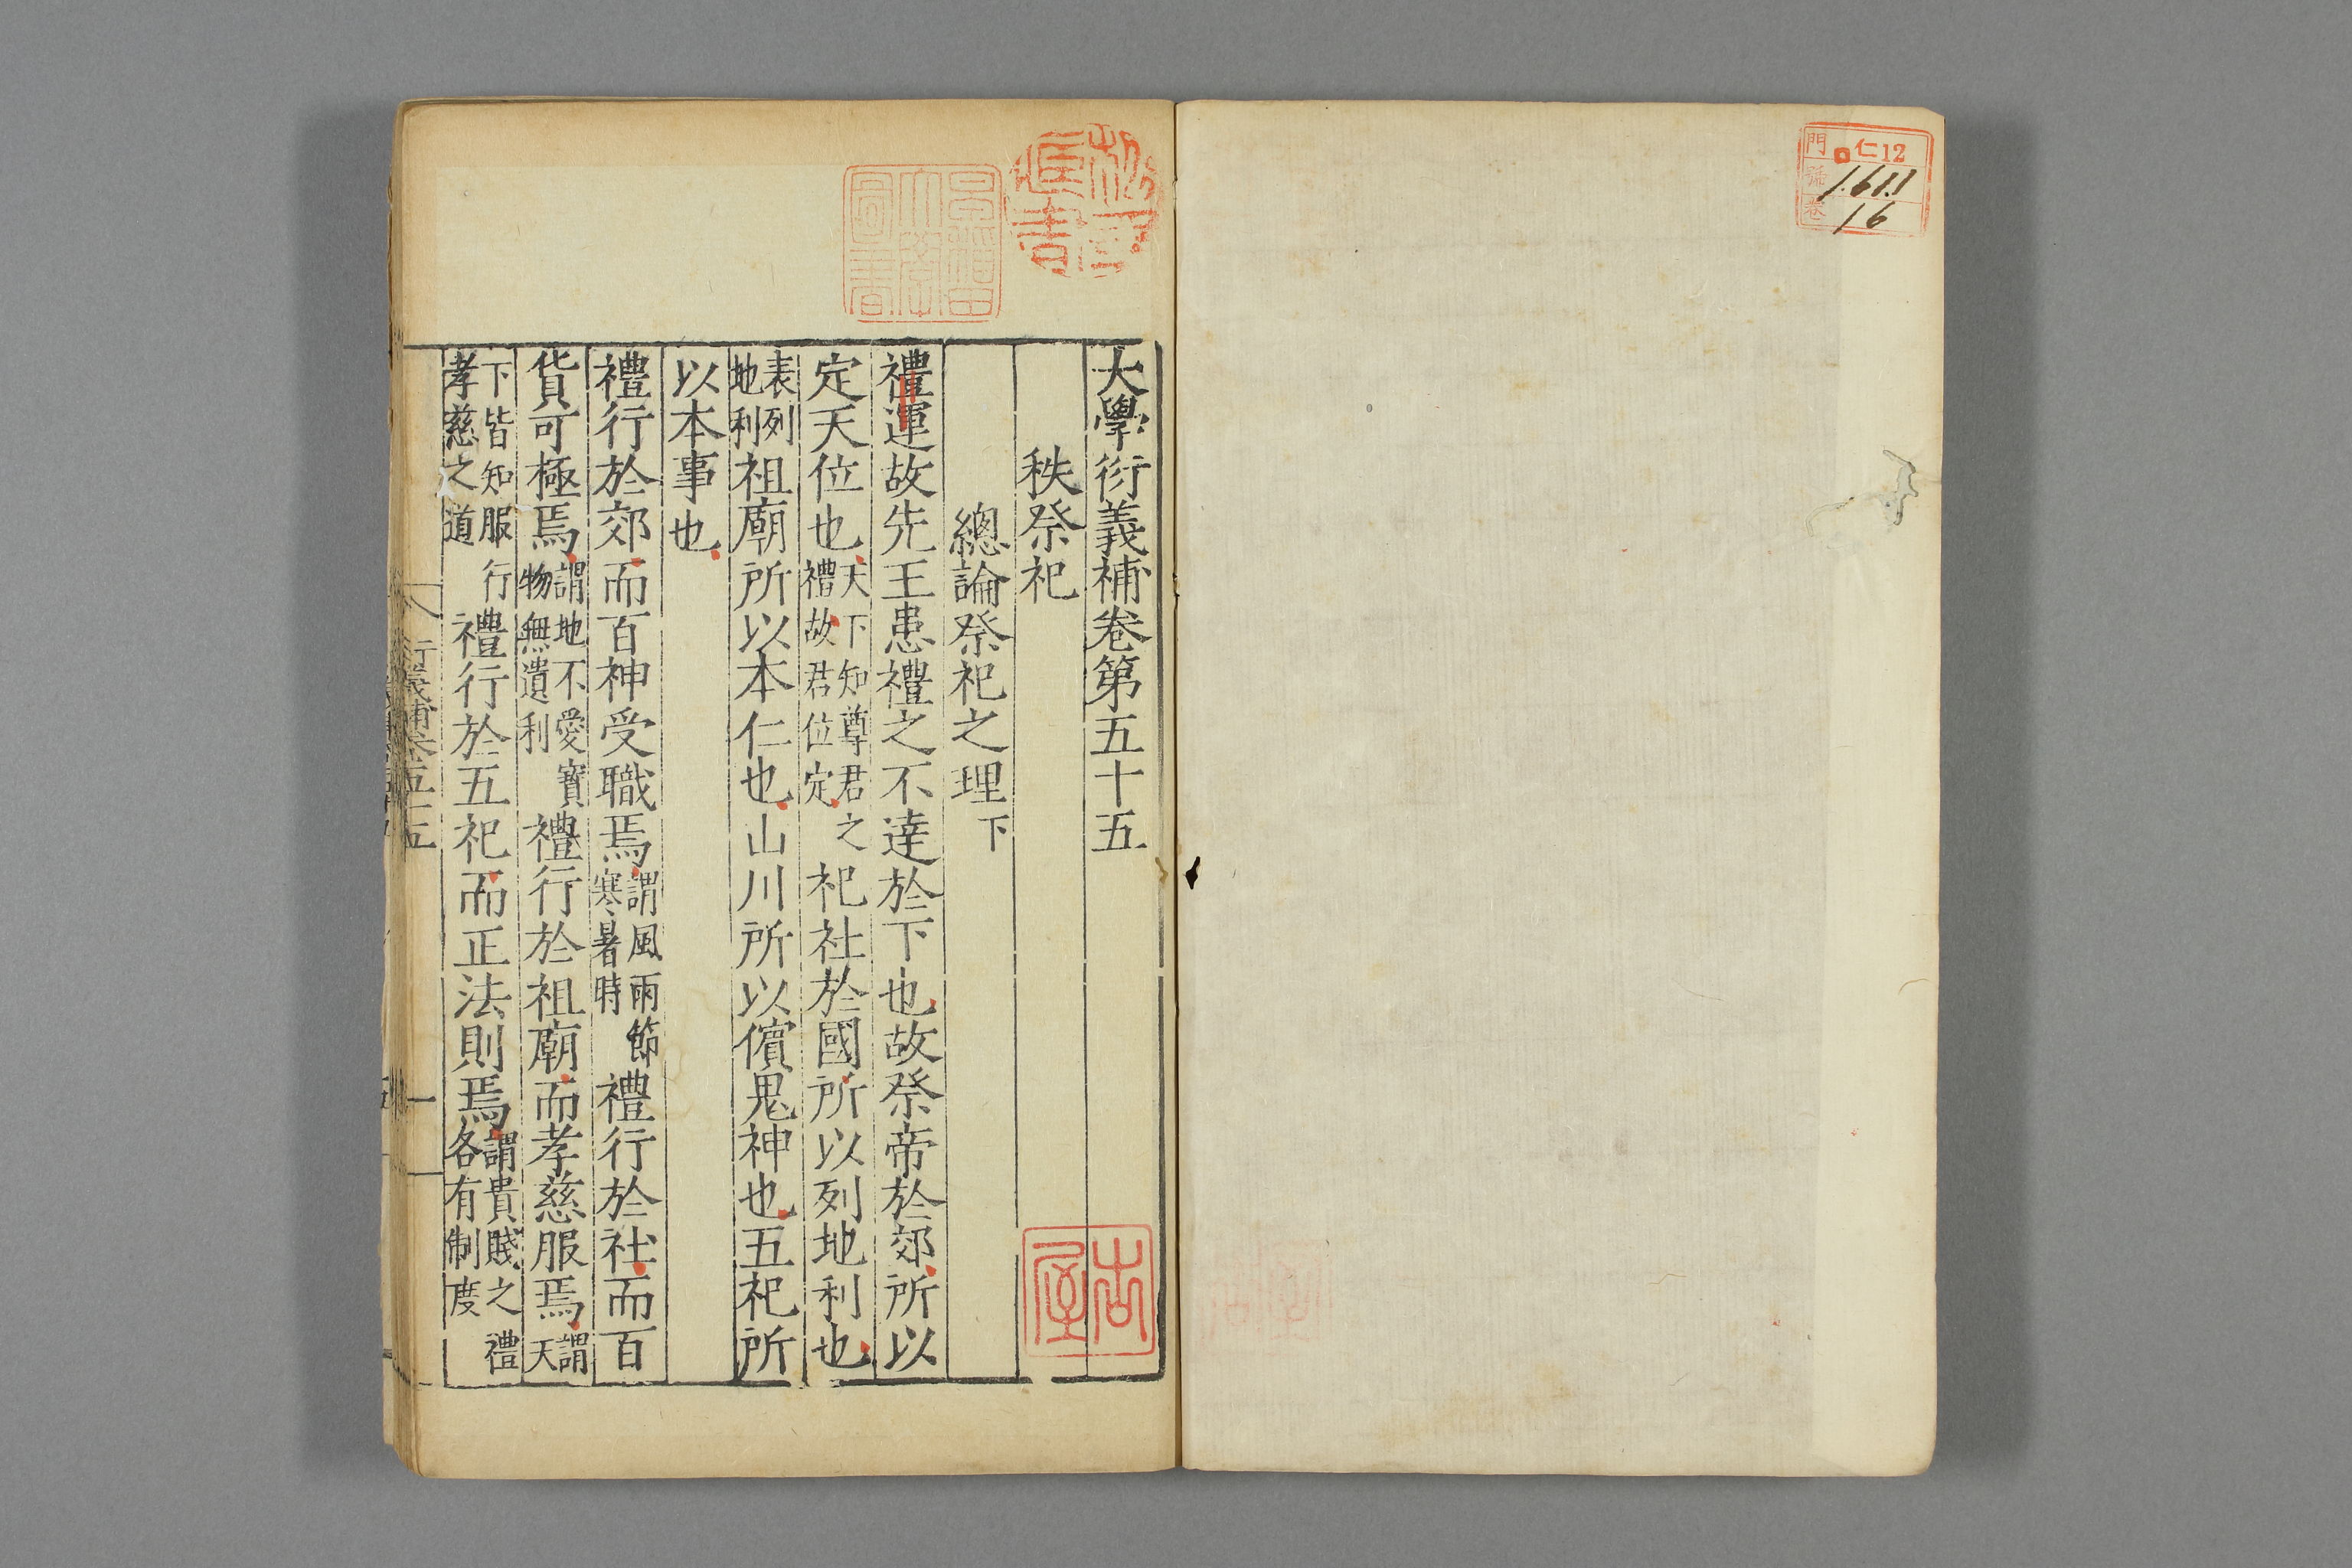 門 仁12
號 1611
卷 16
大學衍義補卷第五十五
秩祭祀
總論祭祀之理下
禮運故先王患禮之不達於下也故祭帝於郊所以
定天位也天下知尊君之禮故君位定祀社於國所以列地利也
表列地利祖廟所以本仁也山川所以儐鬼神也五祀所
以本事也
禮行於郊而百神受職焉謂風雨節寒暑時禮行於社而百
貨可極焉謂地不愛寶物無遺利禮行於祖廟而孝慈服焉謂天
下皆知服行孝慈之道禮行於五祀而正法則焉謂貴賤之禮各有制度
衍義補卷五十五
一